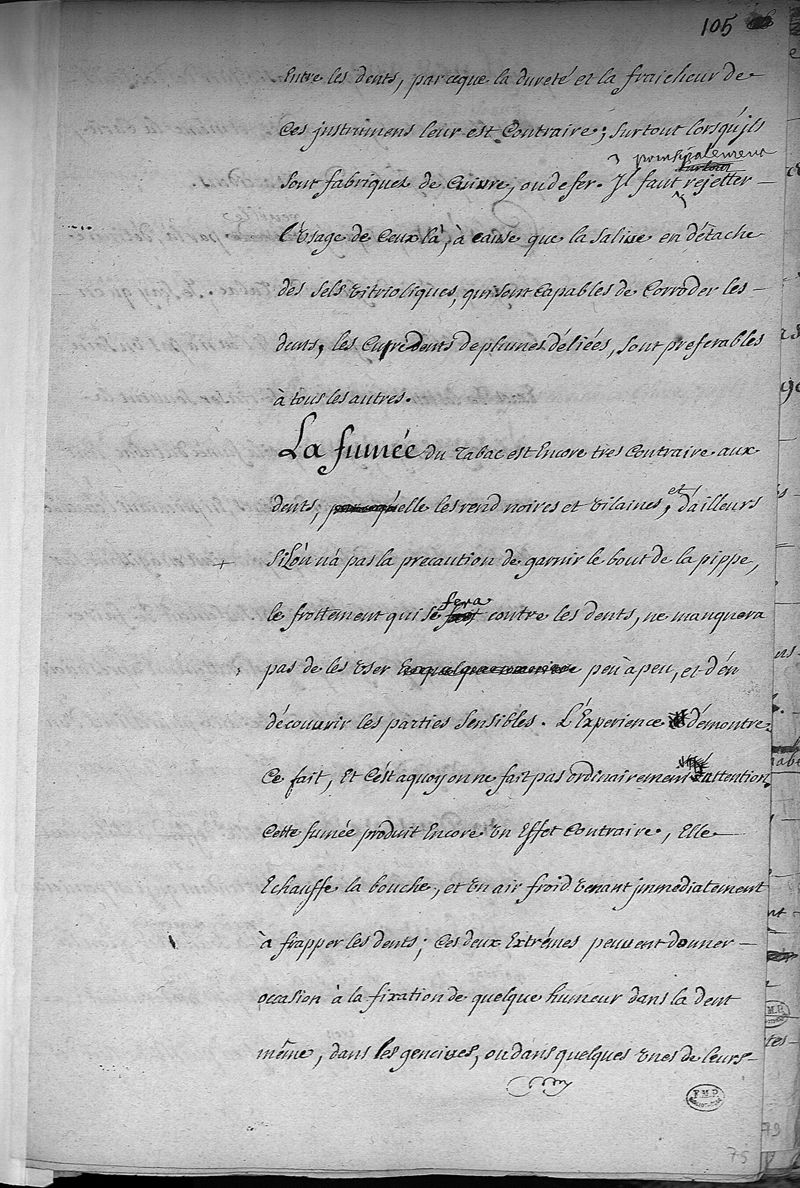 105
Entre les dents, parceque la dureté et la fraicheur de
Ces jnstrumens leur est Contraire; Surtout lorsqu'jls
principalement
Surtout
Sont fabriquez de Cuivre, ou de fer. Jl faut rejetter
l'Usage de Ceux là, à cause que la Salive en détache
des Sels Vitrioliques, qui sont Capables de Corroder les
dents, les Curedents de plumes déliées, Sont preferables
à tous les autres.
La fumée du Tabac est Encore tres Contraire aux
dents, parcequ'elle les rend noires et Vilaines, et d'ailleurs
Si L'on n'a pas la precaution de garnir le bout de la pippe,
sera
le frottement qui se fait contre les dents, ne manquera
pas de les User en quelque maniere peu à peu, et d'en
découvrir les parties Sensibles. L'Experience démontre
Ce fait, Et C'est a quoy on ne fait pas ordinairement attention.
Cette fumée produit Encore Un Effet Contraire, Elle
Echauffe la bouche, et Un air froid Venant jmmediatement
à frapper les dents; Ces deux Extrémes peuvent donner
occasion à la fixation de quelque humeur dans la dent
même, dans les gencives, ou dans quelques Unes de leurs
F.M.P.
79
75